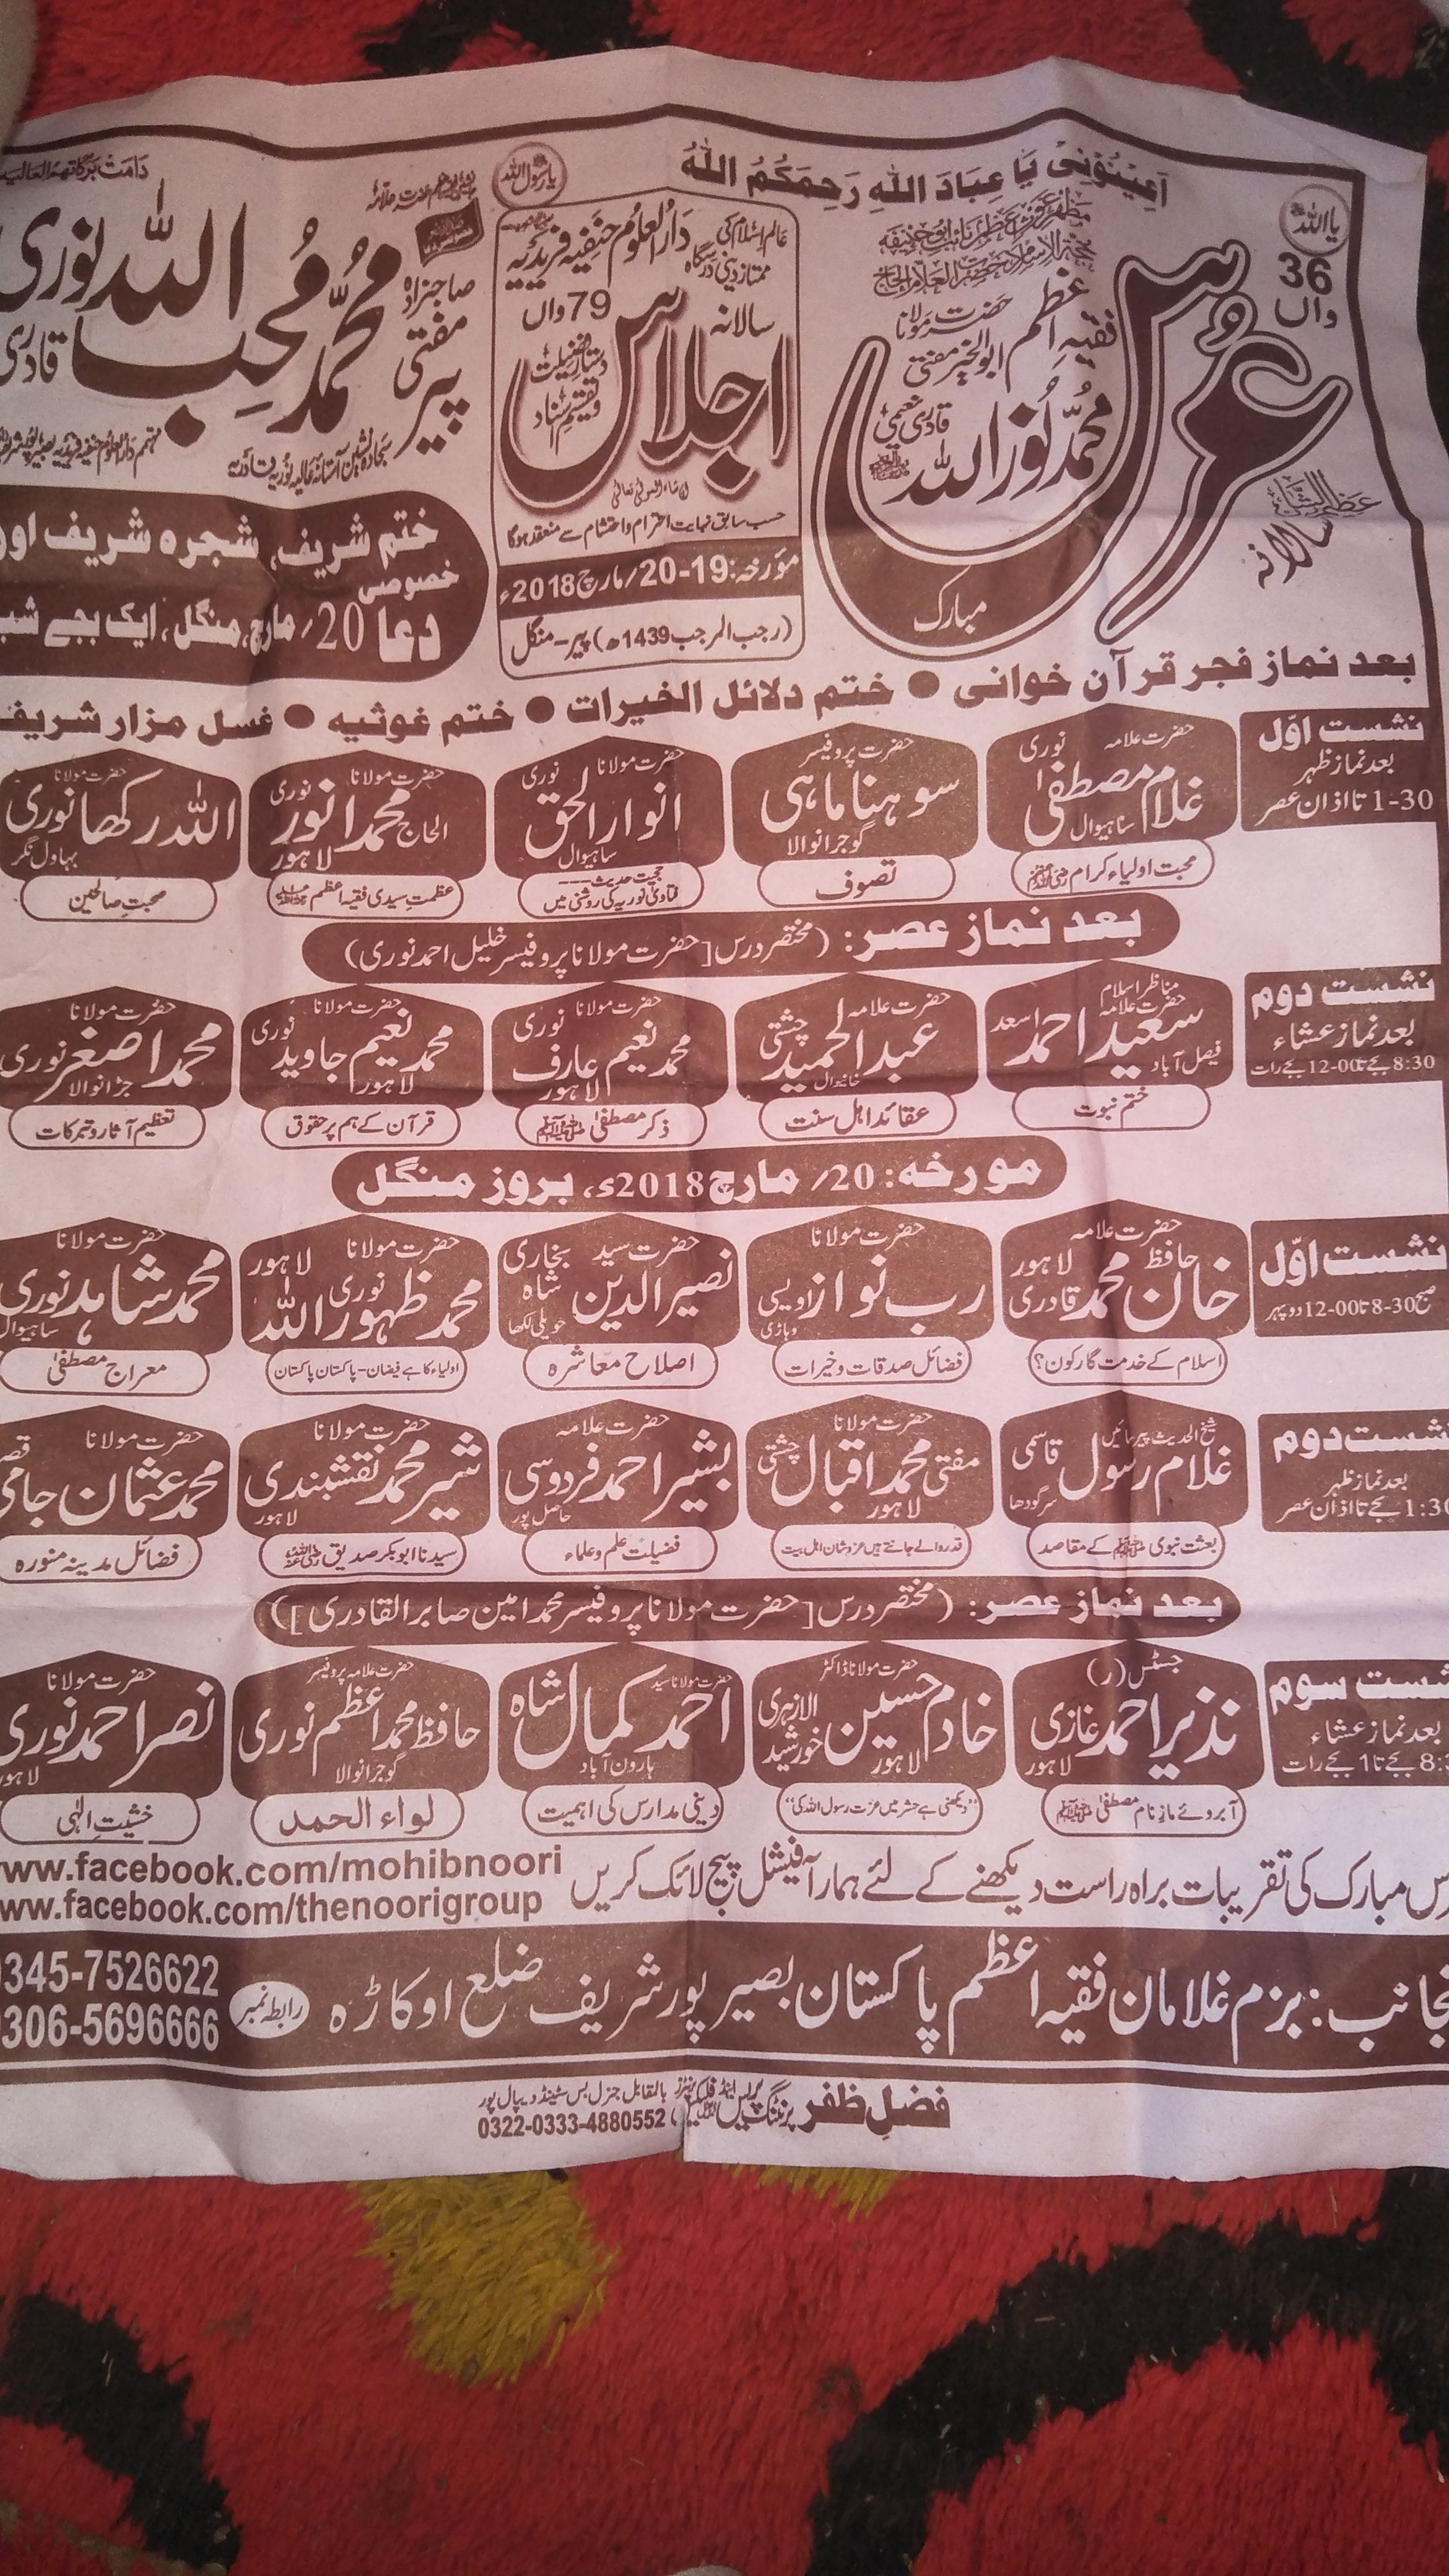 اَعِیْنُوْنِیْ یَا عِبَادَ اللہِ رَحِمَکُمُ اللہُ
یااللہ
یارسول اللہ
36 واں
سالانہ
عرس
مبارک
فقیہِ اعظم حضرت مولانا ابوالخیر مفتی
محمد نوراللہ
قادری نعیمی
عالم اسلام کی ممتاز دینی درسگاہ
دارالعلوم حنفیہ فریدیہ
سالانہ 79 واں
اجلاس
دستار فضیلت
و تقسیم اسناد
حسب سابق نہایت احترام و احتشام سے منعقد ہوگا
مؤرخہ: 19-20/مارچ 2018ء
(رجب المرجب 1439ھ) پیر-منگل
دامت برکاتہم العالیہ
صاحبزادہ مفتی پیر
محمد محب اللہ نوری
قادری
سجادہ نشین آستانہ عالیہ نوریہ قادریہ
ختم شریف، شجرہ شریف اور
خصوصی
دعا 20/ مارچ، منگل، ایک بجے شب
بعد نماز فجر قرآن خوانی ● ختم دلائل الخیرات ● ختم غوثیہ ● غسل مزار شریف
نشست اوّل
بعد نماز ظہر
1-30 تا اذان عصر
حضرت علامہ غلام مصطفیٰ نوری ساہیوال
محبت اولیاء کرام
حضرت پروفیسر سوہنا ماہی گوجرانوالا
تصوف
حضرت مولانا انوار الحق نوری ساہیوال
حجیت حدیث --- فتاویٰ نوریہ کی روشنی میں
حضرت مولانا الحاج محمد انور نوری لاہور
عظمتِ سیدی فقیہ اعظم
حضرت مولانا اللہ رکھا نوری بہاول نگر
صحبتِ صالحین
بعد نماز عصر: (مختصر درس [حضرت مولانا پروفیسر خلیل احمد نوری)
نشست دوم
بعد نماز عشاء
8:30 بجے تا 12-00 بجے رات
مناظر اسلام حضرت علامہ سعید احمد اسعد فیصل آباد
ختم نبوت
حضرت علامہ عبدالحمید چشتی خانیوال
عقائد اہل سنت
حضرت مولانا محمد نعیم عارف نوری لاہور
ذکر مصطفیٰ ﷺ
حضرت مولانا محمد نعیم جاوید نوری لاہور
قرآن کے ہم پر حقوق
حضرت مولانا محمد اصغر نوری جڑانوالا
تعظیم آثار و تبرکات
مورخہ: 20/ مارچ 2018ء، بروز منگل
نشست اوّل
صبح 8-30 تا 12-00 دوپہر
حضرت علامہ حافظ خان محمد قادری لاہور
اسلام کے خدمت گار کون؟
حضرت مولانا رب نواز اویسی وہاڑی
فضائل صدقات و خیرات
حضرت سید نصیر الدین شاہ بخاری حویلی لکھا
اصلاح معاشرہ
حضرت مولانا محمد ظہور اللہ نوری لاہور
اولیاء کا ہے فیضان-پاکستان پاکستان
حضرت مولانا محمد شاہد نوری ساہیوال
معراج مصطفیٰ
شست دوم
بعد نماز ظہر
1:30 بجے تا اذان عصر
شیخ الحدیث پیر سائیں غلام رسول قاسمی سرگودھا
بعثت نبوی ﷺ کے مقاصد
حضرت مولانا مفتی محمد اقبال چشتی لاہور
قدر والے جانتے ہیں عز و شان اہل بیت
حضرت علامہ بشیر احمد فردوسی حاصل پور
فضیلت علم و علماء
حضرت مولانا شیر محمد نقشبندی لاہور
سیدنا ابوبکر صدیق
حضرت مولانا محمد عثمان جامی
فضائل مدینہ منورہ
بعد نماز عصر: (مختصر درس [حضرت مولانا پروفیسر محمد امین صابر القادری])
شست سوم
بعد نماز عشاء
بجے تا 1 بجے رات
جسٹس (ر) نذیر احمد غازی لاہور
آبروئے ما زنام مصطفیٰ ﷺ
حضرت مولانا ڈاکٹر خادم حسین خورشید الازہری لاہور
"دیکھنی ہے حشر میں عزت رسول اللہ کی"
حضرت مولانا سید احمد کمال شاہ ہارون آباد
دینی مدارس کی اہمیت
حضرت علامہ پروفیسر حافظ محمد اعظم نوری گوجرانوالا
لواء الحمد
حضرت مولانا نصر احمد نوری لاہور
خشیتِ الٰہی
رس مبارک کی تقریبات براہ راست دیکھنے کے لئے ہمارا آفیشل پیج لائک کریں
ww.facebook.com/mohibnoori
ww.facebook.com/thenoorigroup
جانب: بزم غلامان فقیہ اعظم پاکستان بصیر پور شریف ضلع اوکاڑہ
رابطہ نمبر
0345-7526622
0306-5696666
فضل ظفر پرنٹنگ پریس
بالمقابل جنرل بس سٹینڈ دیپال پور
0322-0333-4880552